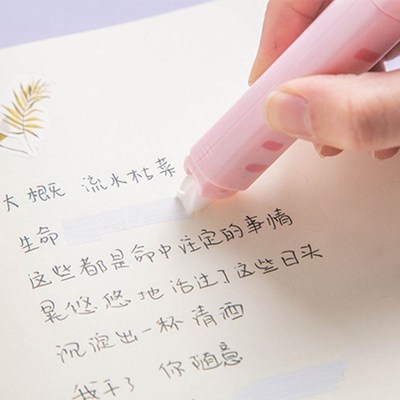 大概是 流水枯荣
生命
这些都是命中注定的事情
晃悠悠地活过了这些日头
沉淀出一杯清酒
我干了 你随意